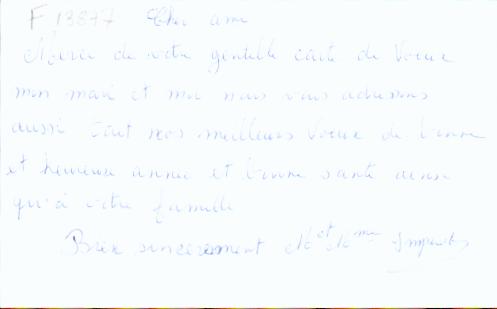 F 13877 Cher ami
Merci de votre gentille carte de Voeux
mon mari et moi nous vous adressons
aussi tout nos meilleurs Voeux de bonne
et heureuse annee et bonne santé ainsi
qu'à votre famille
Bien sincerement M et Mme